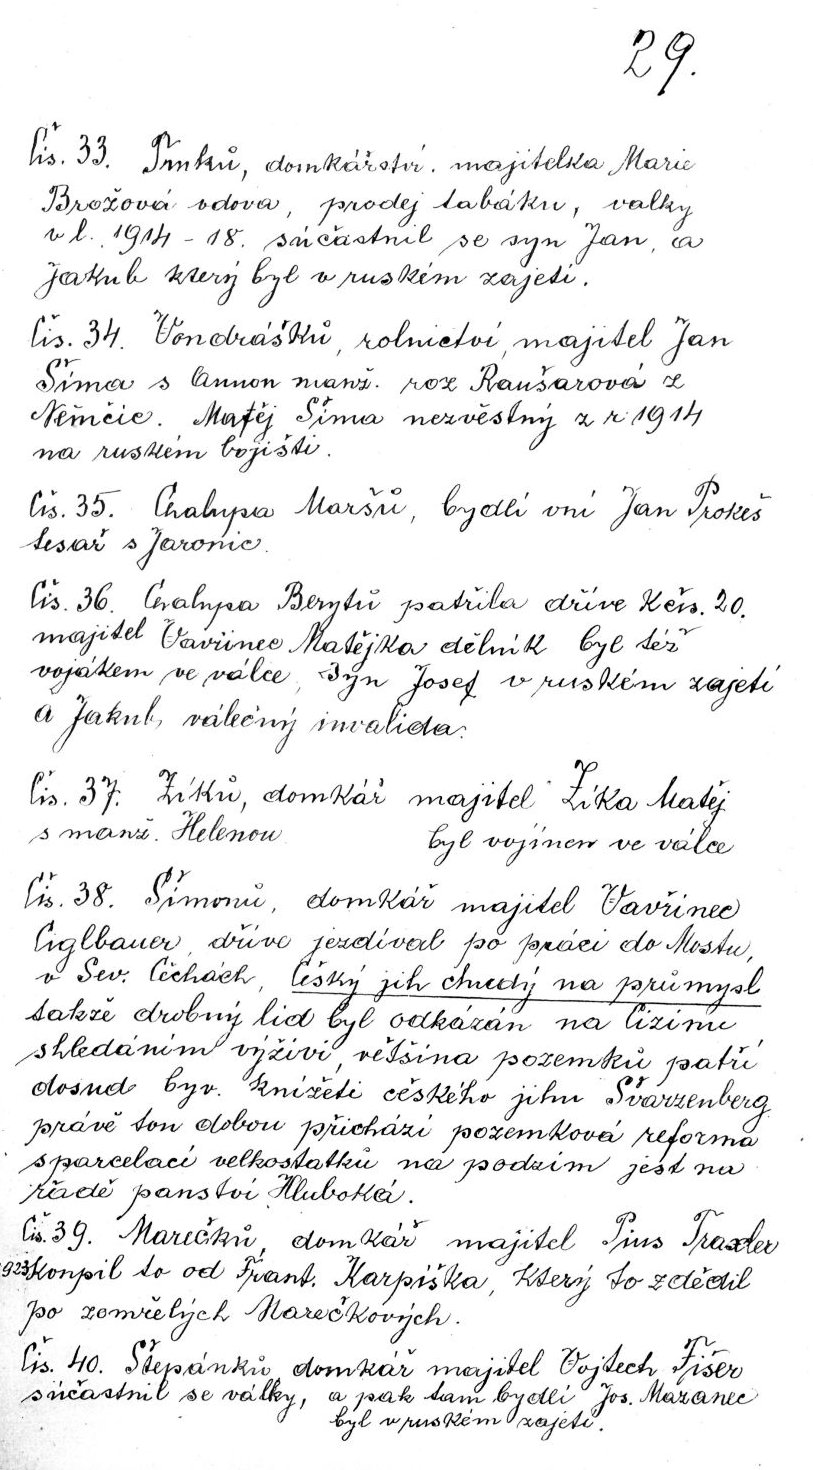 29.
Čís. 33. Trnků, domkářství. majitelka Marie
Brožová vdova, prodej tabáku, valky
v l. 1914 - 18. súčastnil se syn Jan, a
Jakub který byl v ruském zajetí.
Čís. 34. Vondrášků, rolnictví, majitel Jan
Šíma s Annou manž. roz Raušarová z
Němčic. Matěj Šíma nezvěstný z r. 1914
na ruském bojišti.
Čís. 35. Chalupa Maršů, bydlí vní Jan Prokeš
tesař s Jaronic.
Čís. 36. Chalupa Berytů patřila dříve kčís. 20.
majitel Vavřinec Matějka dělník byl též
vojákem ve válce, Syn Josef v ruském zajetí
a Jakub, válečný invalida.
Čís. 37. Zíků, domkář majitel Zíka Matěj
s manž. Helenou byl vojínem ve válce
Čís. 38. Šímonů, domkář majitel Vavřinec
Ciglbauer, dříve jezdíval po práci do Mostu,
v Sev. Čechách, Český jih chudý na průmysl
takže drobný lid byl odkázán na Cizinu
shledáním výživi, většina pozemků patří
dosud byv. knížeti českého jihu Švarzenberg
právě tou dobou přichází pozemková reforma
s parcelací velkostatků na podzim jest na
řadě panství Hluboká.
Čís. 39. Marečků, domkář majitel Pius Traxler
1923 koupil to od Frant. Karpíška, který to zdědil
po zemřelých Marečkových.
Čís. 40. Štěpánků domkář majitel Vojtech Fišer
súčastnil se války, a pak tam bydlí Jos. Mazanec
byl v ruském zajetí.